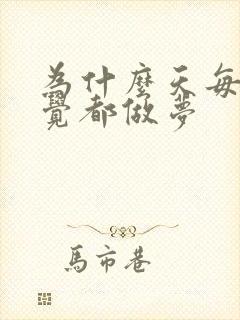 為什麼天每
覺都做夢
馬市巷